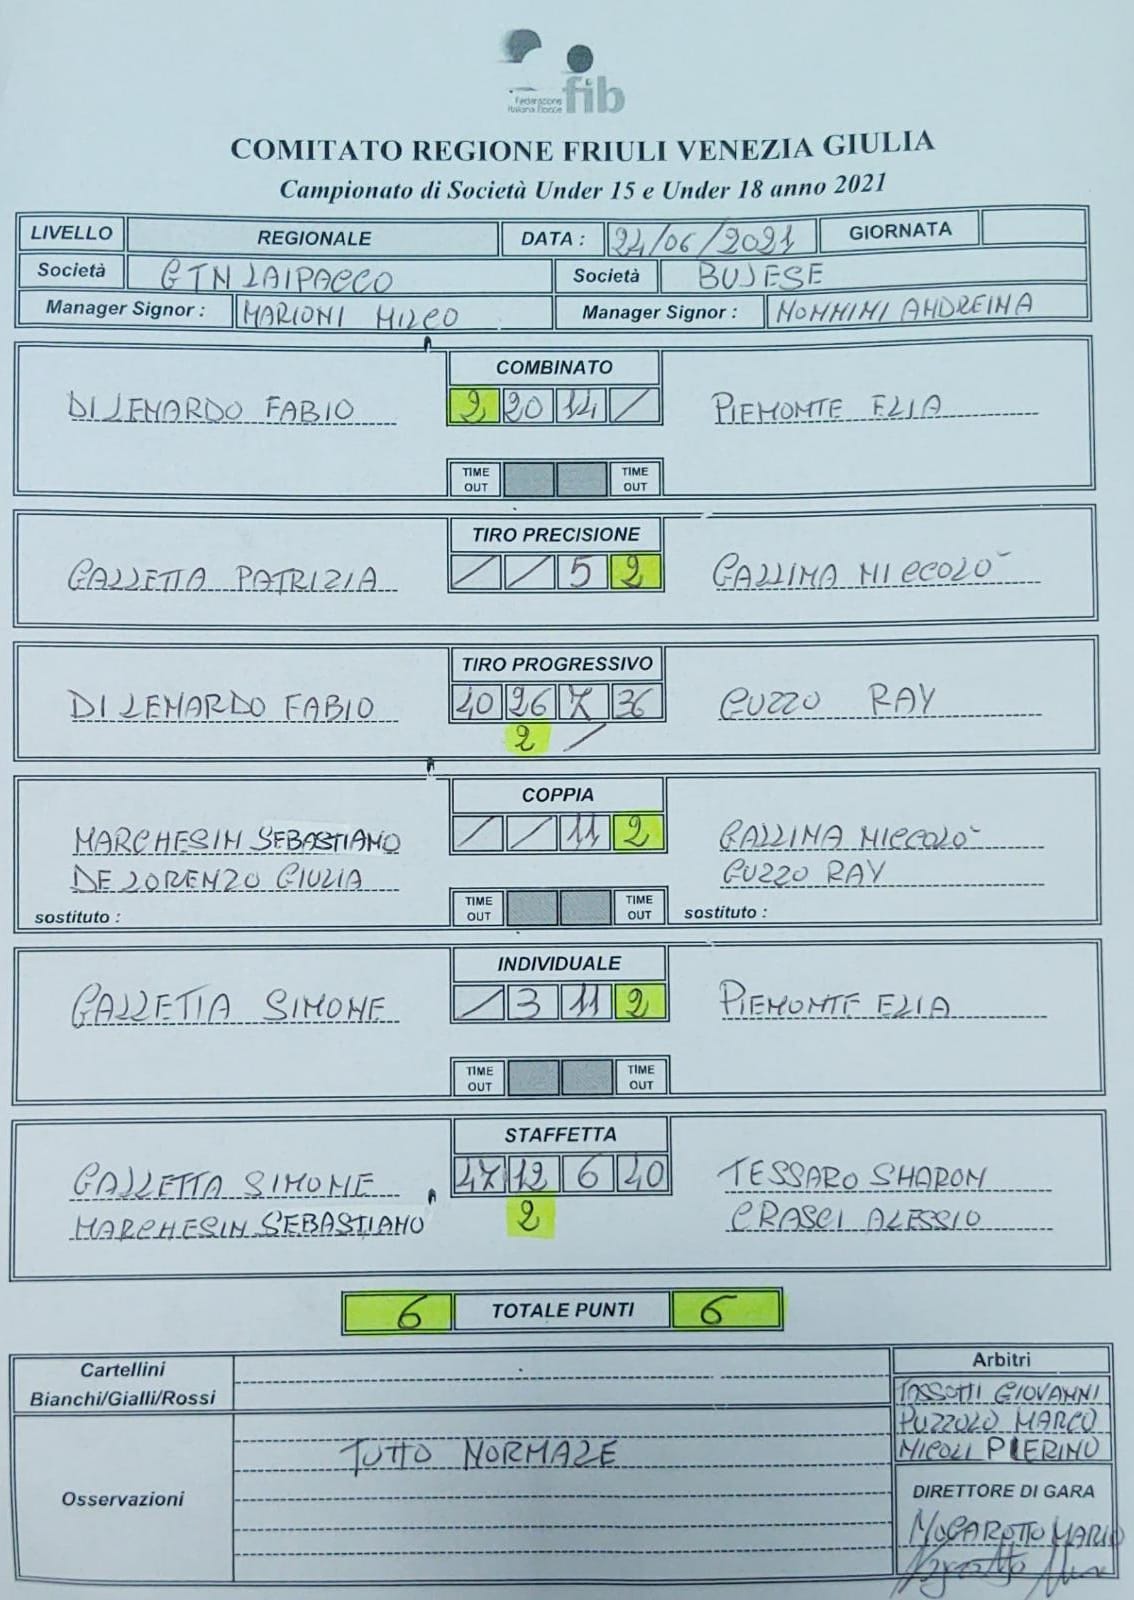 Federazione
Italiana Bocce fib
COMITATO REGIONE FRIULI VENEZIA GIULIA
Campionato di Società Under 15 e Under 18 anno 2021
LIVELLO REGIONALE DATA : 24/06/2021 GIORNATA
Società GTN LAIPACCO Società BUJESE
Manager Signor : MARIONI MILCO Manager Signor : NONNINI ANDREINA
COMBINATO
DI LENARDO FABIO 2 20 14 / PIEMONTE ELIA
TIME OUT TIME OUT
TIRO PRECISIONE
GALLETTA PATRIZIA / / 5 2 GALLINA NICCOLO'
TIRO PROGRESSIVO
DI LENARDO FABIO 40 26 7 36 GUZZO RAY
2 /
COPPIA
MARCHESIN SEBASTIANO / / 11 2 GALLINA NICCOLO'
DE LORENZO GIULIA GUZZO RAY
sostituto : TIME OUT TIME OUT sostituto :
INDIVIDUALE
GALLETTA SIMONE / 3 11 2 PIEMONTE ELIA
TIME OUT TIME OUT
STAFFETTA
GALLETTA SIMONE 47 12 6 40 TESSARO SHARON
MARCHESIN SEBASTIANO 2 CRASCI ALESSIO
6 TOTALE PUNTI 6
Cartellini
Bianchi/Gialli/Rossi
Arbitri
TASSOTTI GIOVANNI
PUZZOLO MARCO
NICOLI PIERINO
Osservazioni TUTTO NORMALE
DIRETTORE DI GARA
NOGAROTTO MARIO